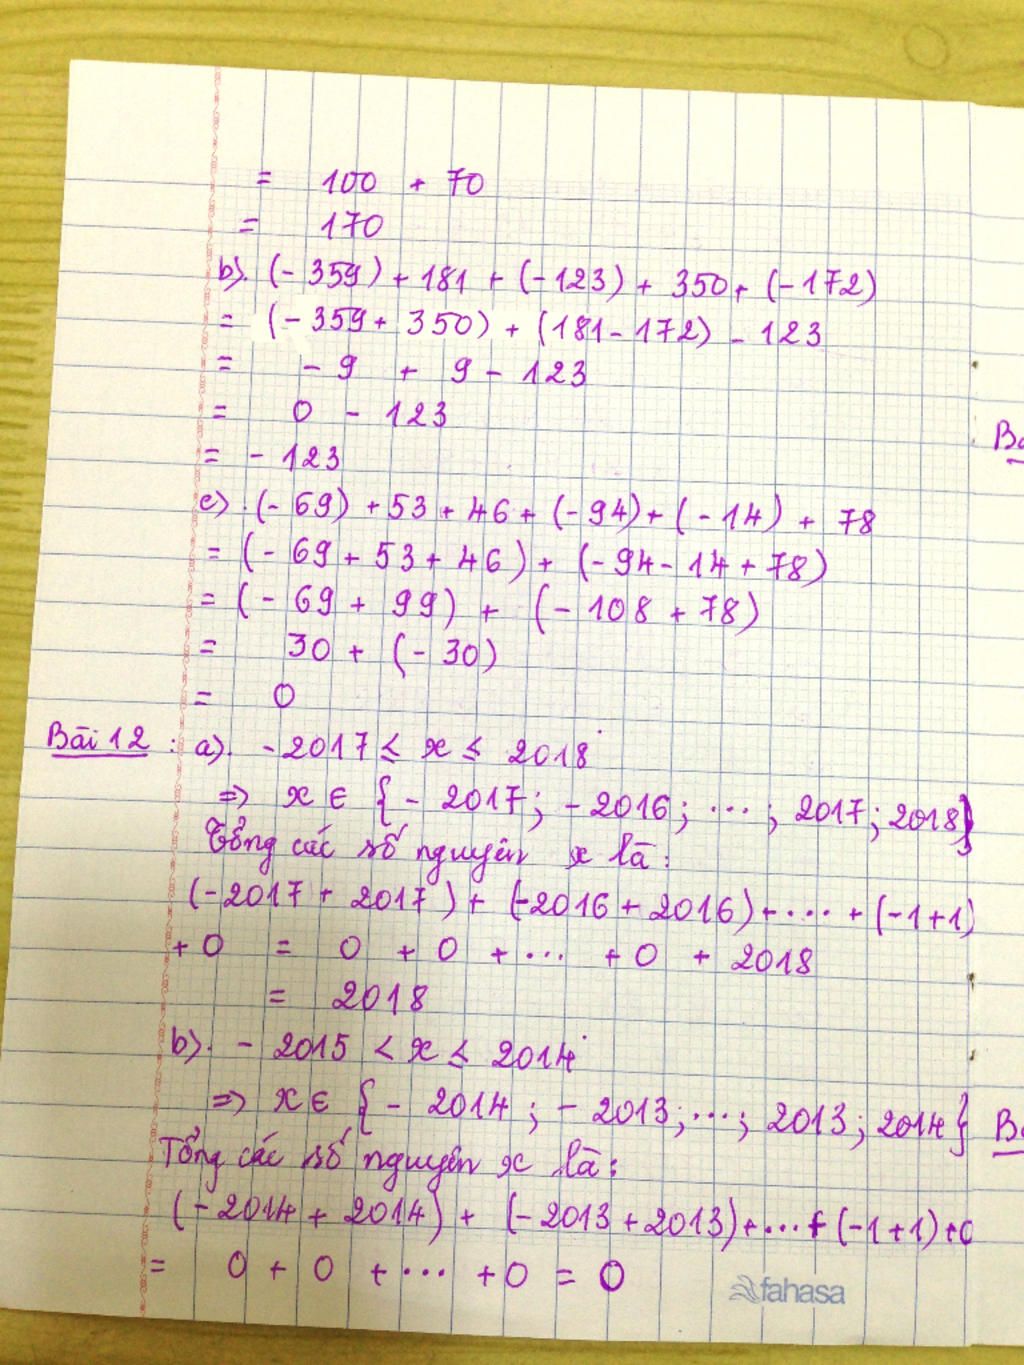 = 100 + 70
= 170
b). (- 359) + 181 + (-123) + 350 + (-172)
= (- 359 + 350) + (181 - 172) - 123
= - 9 + 9 - 123
= 0 - 123
= - 123
c). (- 69) + 53 + 46 + (- 94) + (- 14) + 78
= (- 69 + 53 + 46) + (- 94 - 14 + 78)
= (- 69 + 99) + (- 108 + 78)
= 30 + (- 30)
= 0
Bài 12 : a). - 2017 ≤ x ≤ 2018
=> x ∈ { - 2017; - 2016; ...; 2017; 2018}
Tổng các số nguyên x là:
(- 2017 + 2017) + (-2016 + 2016) + .... + (-1+1)
+ 0 = 0 + 0 + ... + 0 + 2018
= 2018
b). - 2015 < x ≤ 2014
=> x ∈ { - 2014; - 2013; ...; 2013; 2014}
Tổng các số nguyên x là:
(- 2014 + 2014) + (- 2013 + 2013) + ... + (-1+1) + 0
= 0 + 0 + ... + 0 = 0
fahasa